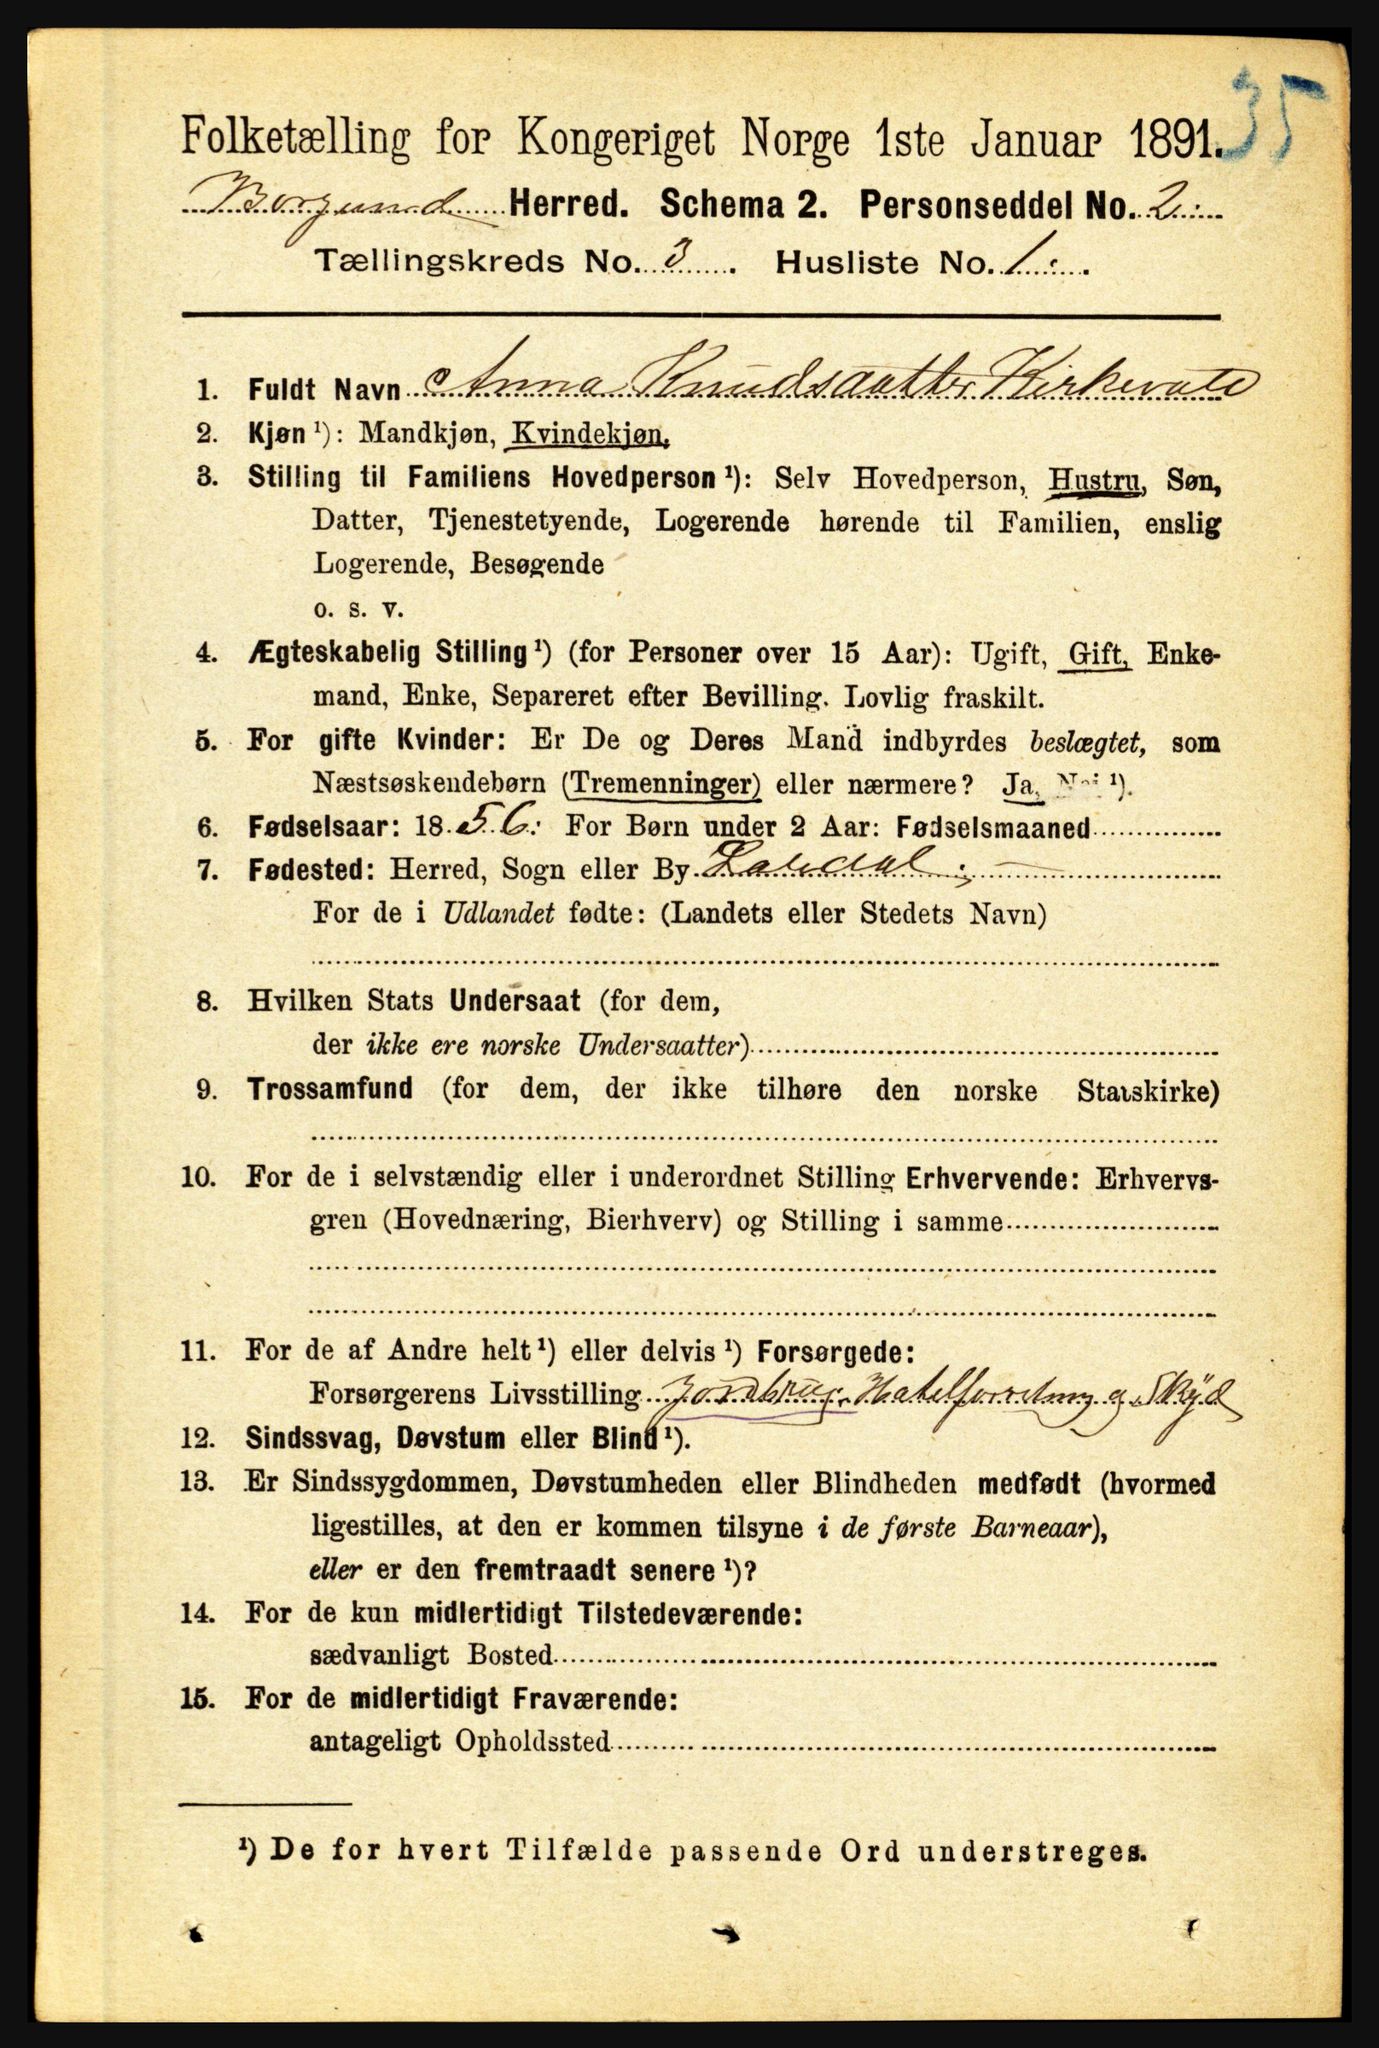 35
Folketælling for Kongeriget Norge 1ste Januar 1891.
Borgund Herred. Schema 2. Personseddel No. 2.
Tællingskreds No. 3. Husliste No. 1.
1. Fuldt Navn Anna Knudsdatter Kirkevold
2. Kjøn ¹): Mandkjøn, Kvindekjøn.
3. Stilling til Familiens Hovedperson ¹): Selv Hovedperson, Hustru, Søn,
Datter, Tjenestetyende, Logerende hørende til Familien, enslig
Logerende, Besøgende
o. s. v.
4. Ægteskabelig Stilling ¹) (for Personer over 15 Aar): Ugift, Gift, Enke-
mand, Enke, Separeret efter Bevilling. Lovlig fraskilt.
5. For gifte Kvinder: Er De og Deres Mand indbyrdes beslægtet, som
Næstsøskendebørn (Tremenninger) eller nærmere? Ja, Nei ¹).
6. Fødselsaar: 1856. For Børn under 2 Aar: Fødselsmaaned
7. Fødested: Herred, Sogn eller By
For de i Udlandet fødte: (Landets eller Stedets Navn)
8. Hvilken Stats Undersaat (for dem,
der ikke ere norske Undersaatter)
9. Trossamfund (for dem, der ikke tilhøre den norske Statskirke)
10. For de i selvstændig eller i underordnet Stilling Erhvervende: Erhvervs-
gren (Hovednæring, Bierhverv) og Stilling i samme
11. For de af Andre helt ¹) eller delvis ¹) Forsørgede:
Forsørgerens Livsstilling Jordbrug. Hotelforretning og Skyd
12. Sindssvag, Døvstum eller Blind ¹).
13. Er Sindssygdommen, Døvstumheden eller Blindheden medfødt (hvormed
ligestilles, at den er kommen tilsyne i de første Barneaar),
eller er den fremtraadt senere ¹)?
14. For de kun midlertidigt Tilstedeværende:
sædvanligt Bosted
15. For de midlertidigt Fraværende:
antageligt Opholdssted
¹) De for hvert Tilfælde passende Ord understreges.